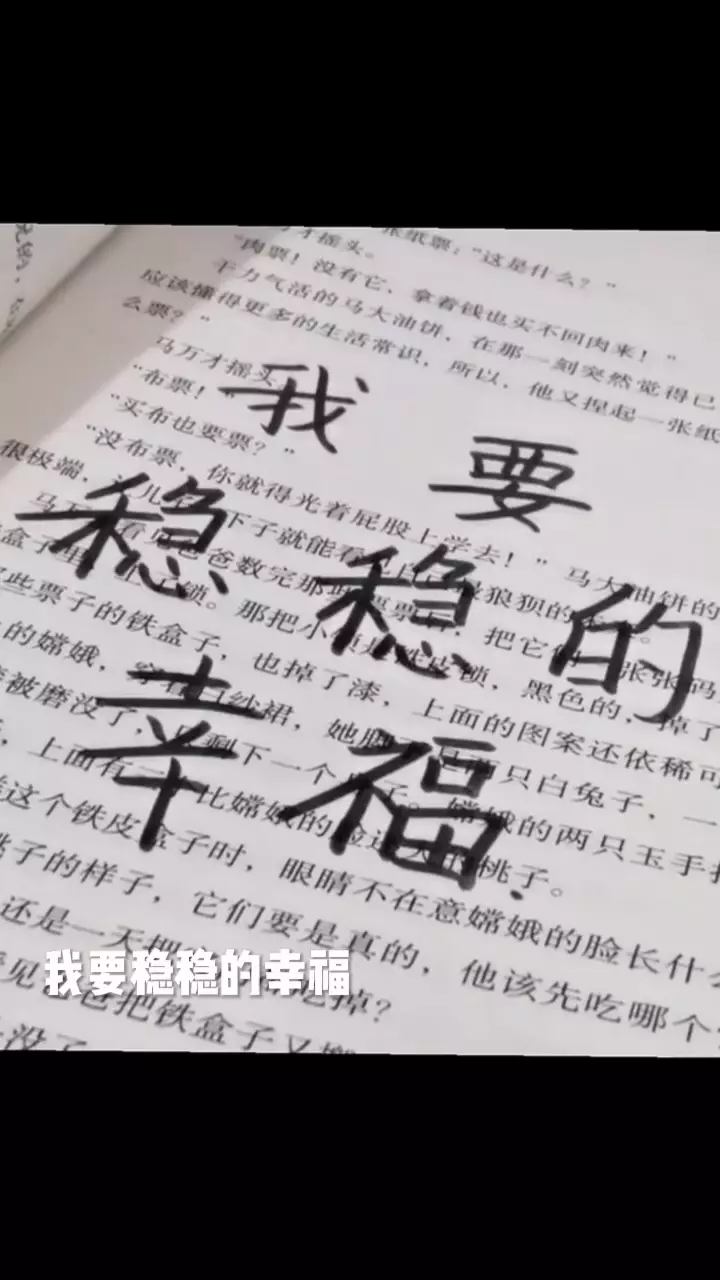 张纸票："这是什么？"
万才摇头。
"肉票！没有它，拿着钱也买不回肉来！"
干力气活的马大油饼，在那一刻突然觉得已
应该懂得更多的生活常识，所以，他又捏起一张纸
么票？"
马万才摇头
"布票！
"买布也要票？"
"没布票，你就得光着屁股上学去！"马大油饼的
很极端，
下子就能看
狼狈的
马
看
爸数完那
把它
张张码
盒子里
锁。那把小
锁，黑色的，掉了
些票子的铁盒子，也掉了漆，上面的图案还依稀可
的嫦娥，穿着
纱裙，她脚
两只白兔子，一
被磨没了，
剩下一个
子。嫦娥的两只玉手
，上面有一
比嫦娥的脸还大的桃子。
这个铁皮盒子时，眼睛不在意嫦娥的脸长什
桃子的样子，它们要是真的，他该先吃哪个
还是一天把
吃掉？
见
爸把铁盒子又
没了
我要
稳稳的
幸福.
我要稳稳的幸福